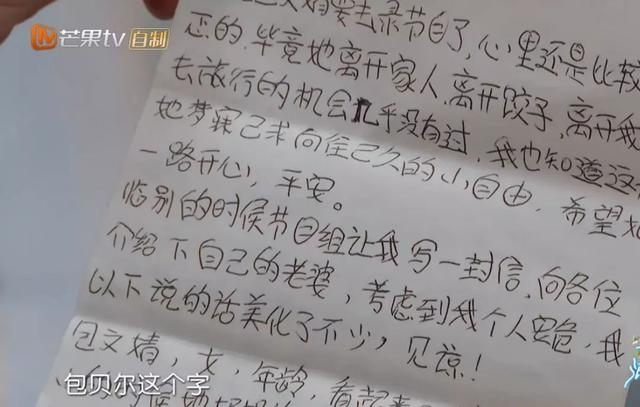 芒果tv 自制
文婧要去录节目了,心里还是比较
恶的.毕竟她离开家人,离开饺子,离开我
去旅行的机会几乎没有过,我也知道这
她梦寐已求向往已久的小自由,希望她
一路开心,平安。
临别的时候节目组让我写一封信,向各位
介绍下自己的老婆,考虑到我个人安危,我
以下说的话美化了不少,见谅!
包文婧,女,年龄,看起来
包贝尔这个字